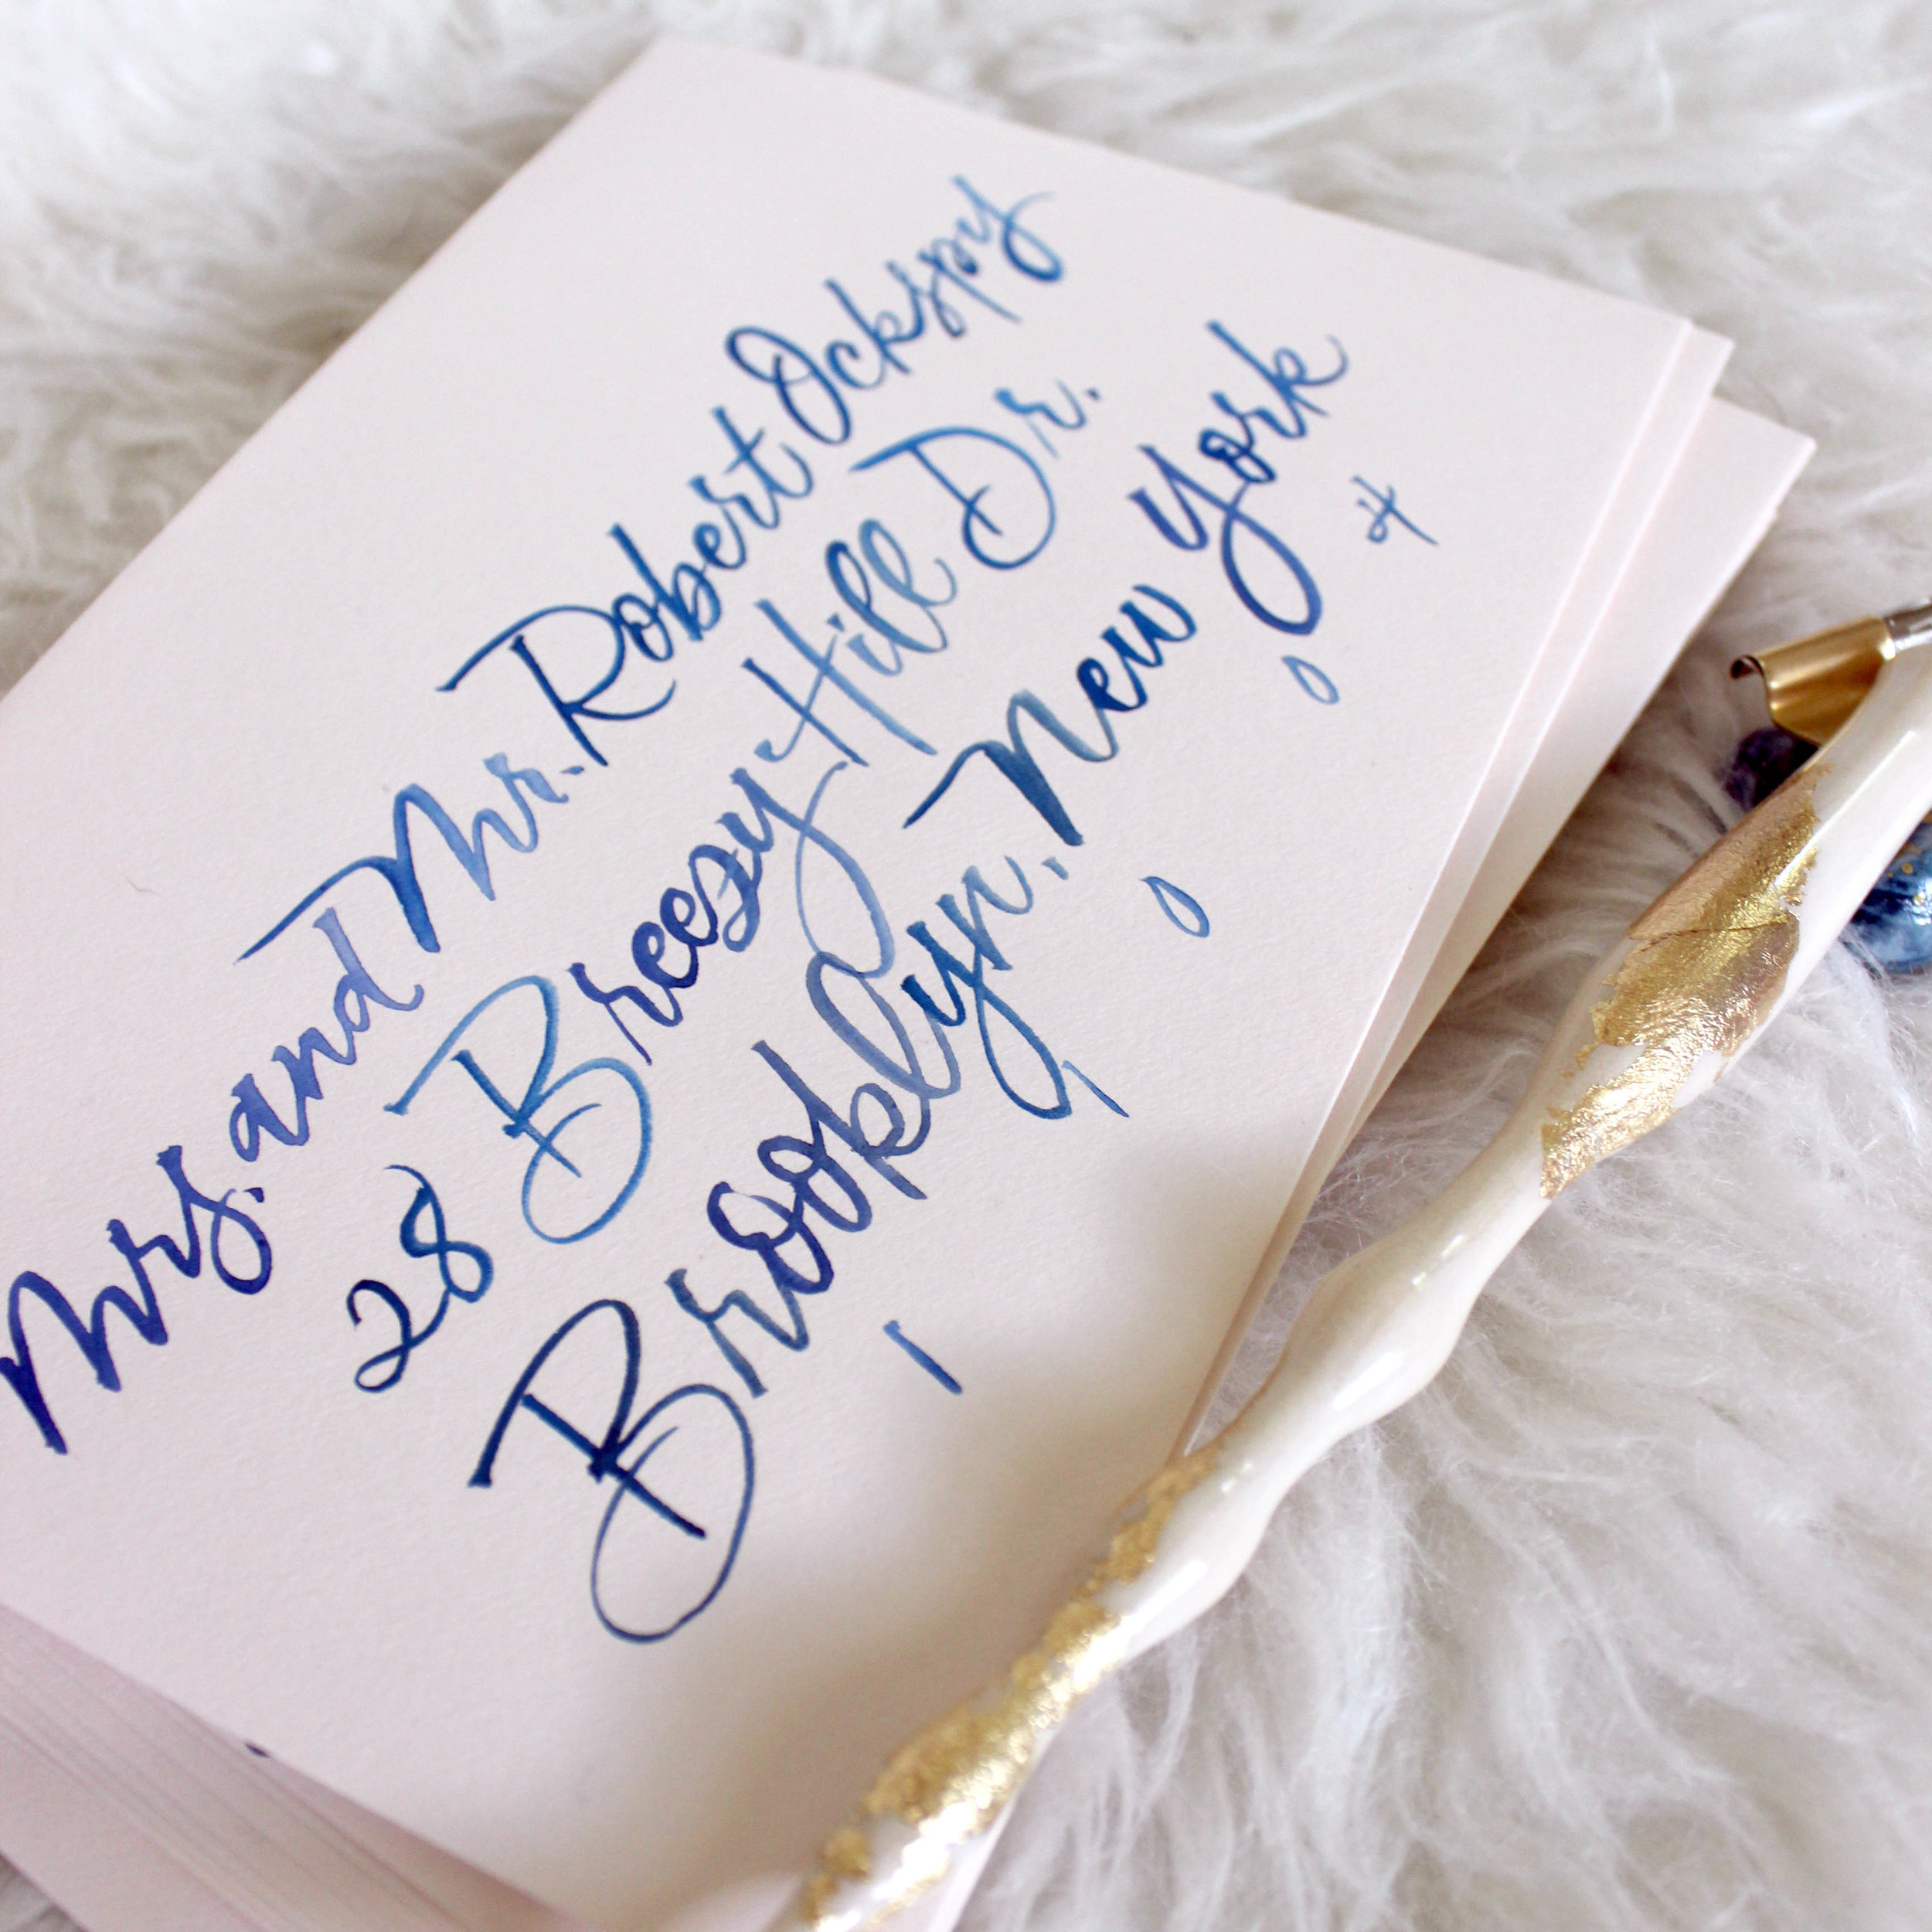 Mrs. and Mr. Robert Ockspy
28 Breezy Hill Dr.
Brooklyn, New York
1 1 0 0 4